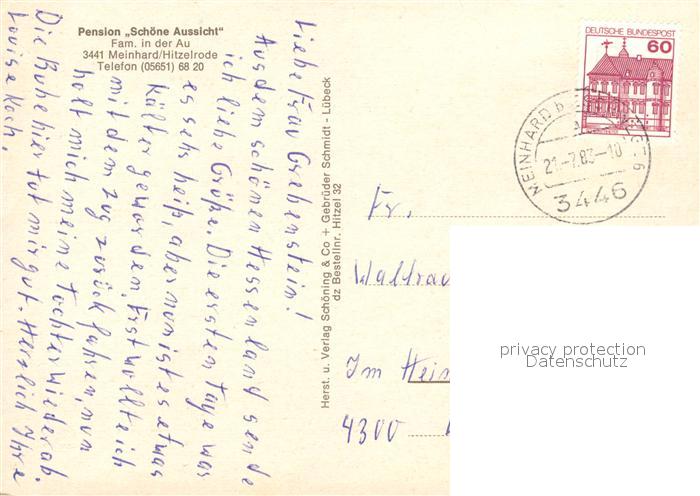 Pension „Schöne Aussicht"
Fam. in der Au
3441 Meinhard/Hitzelrode
Telefon (05651) 68 20
Liebe Frau Grebenstein!
Aus dem schönen Hessenland sende
ich liebe Grüße. Die ersten Tage war
es sehr heiß, aber nun ist es etwas
kälter geworden. Erst wollte ich
mit dem Zug zurück fahren, nun
holt mich meine Tochter wieder ab.
Die Ruhe hier tut mir gut. Herzlich Ihre
Louise Koch.
Herst. u. Verlag Schöning & Co + Gebrüder Schmidt - Lübeck
dz Bestellnr. Hitzel 32
DEUTSCHE BUNDESPOST
60
MEINHARD
21.-7.83-10
3446
Fr.
Waltrau
Im Hein
4300
privacy protection
Datenschutz